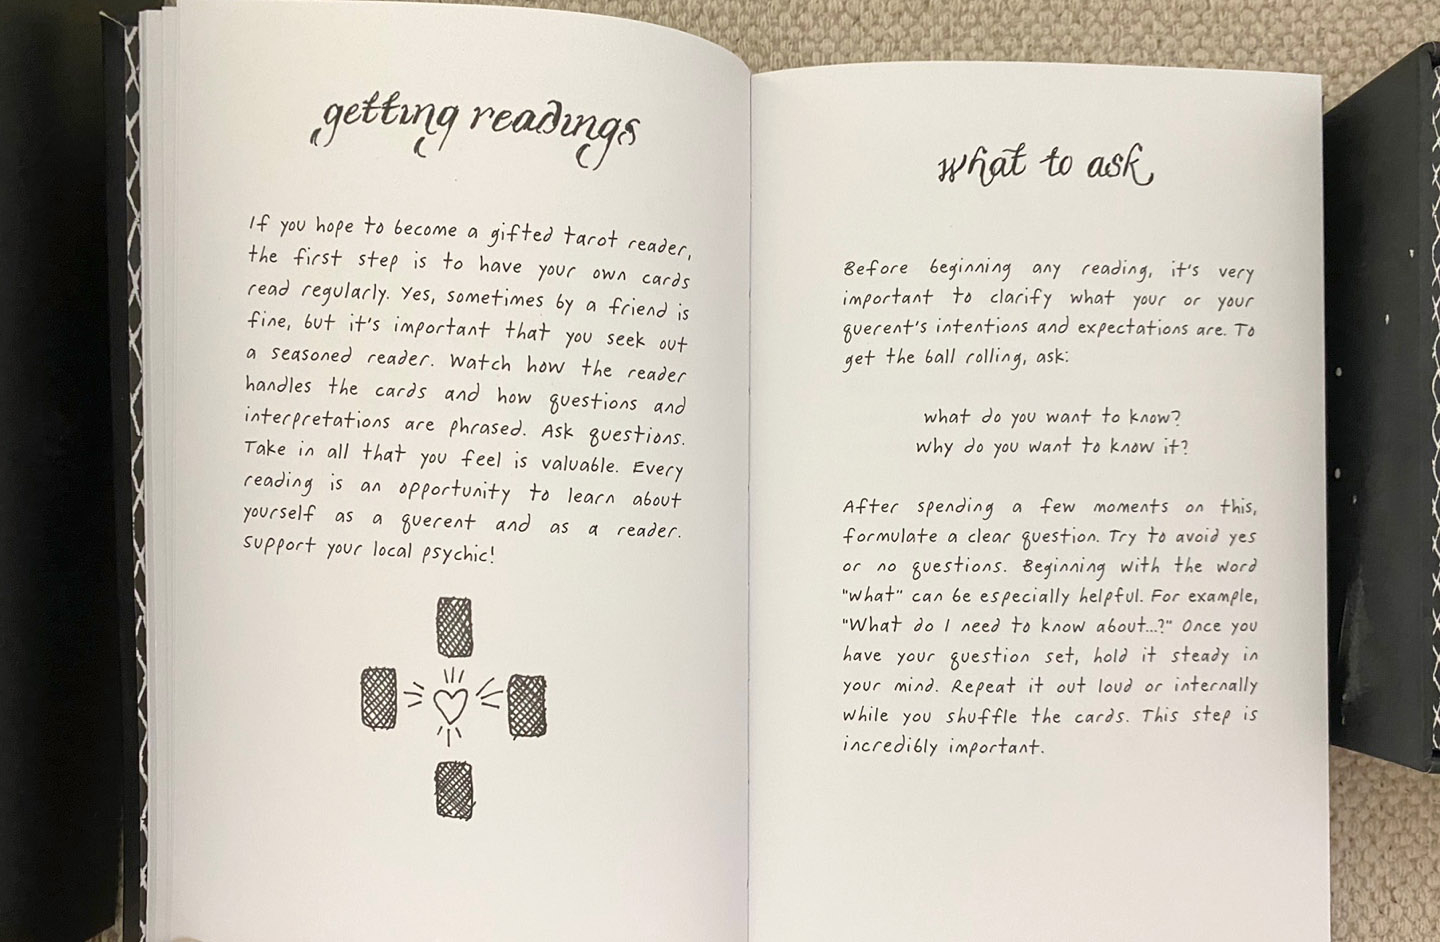 getting readings
If you hope to become a gifted tarot reader,
the first step is to have your own cards
read regularly. Yes, sometimes by a friend is
fine, but it's important that you seek out
a seasoned reader. Watch how the reader
handles the cards and how questions and
interpretations are phrased. Ask questions.
Take in all that you feel is valuable. Every
reading is an opportunity to learn about
yourself as a querent and as a reader.
Support your local psychic!
what to ask
Before beginning any reading, it's very
important to clarify what your or your
querent's intentions and expectations are. To
get the ball rolling, ask:
what do you want to know?
Why do you want to know it?
After spending a few moments on this,
formulate a clear question. Try to avoid yes
or no questions. Beginning with the word
"what" can be especially helpful. For example,
"What do I need to know about...?" Once you
have your question set, hold it steady in
your mind. Repeat it out loud or internally
while you shuffle the cards. This step is
incredibly important.